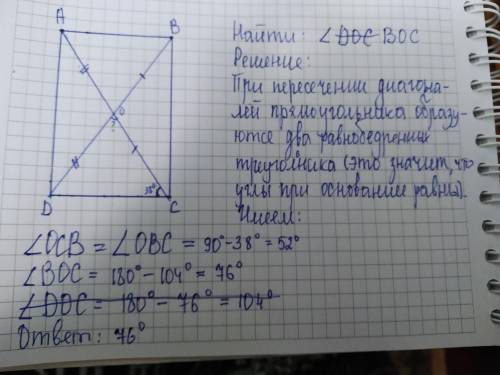 A
B
O
?
38°
D
C
Найти: ∠DOC BOC
Решение:
При пересечении диагона-
лей прямоугольника образу-
ются два равнобедренных
треугольника (это значит, что
углы при основании равны).
Имеем:
∠OCB = ∠OBC = 90° - 38° = 52°
∠BOC = 180° - 104° = 76°
∠DOC = 180° - 76° = 104°
Ответ: 76°